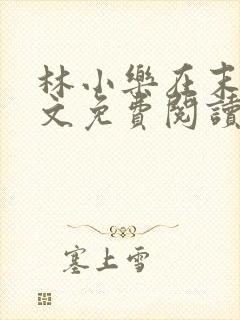 林小樂在末
文免費閱讀
塞上雪